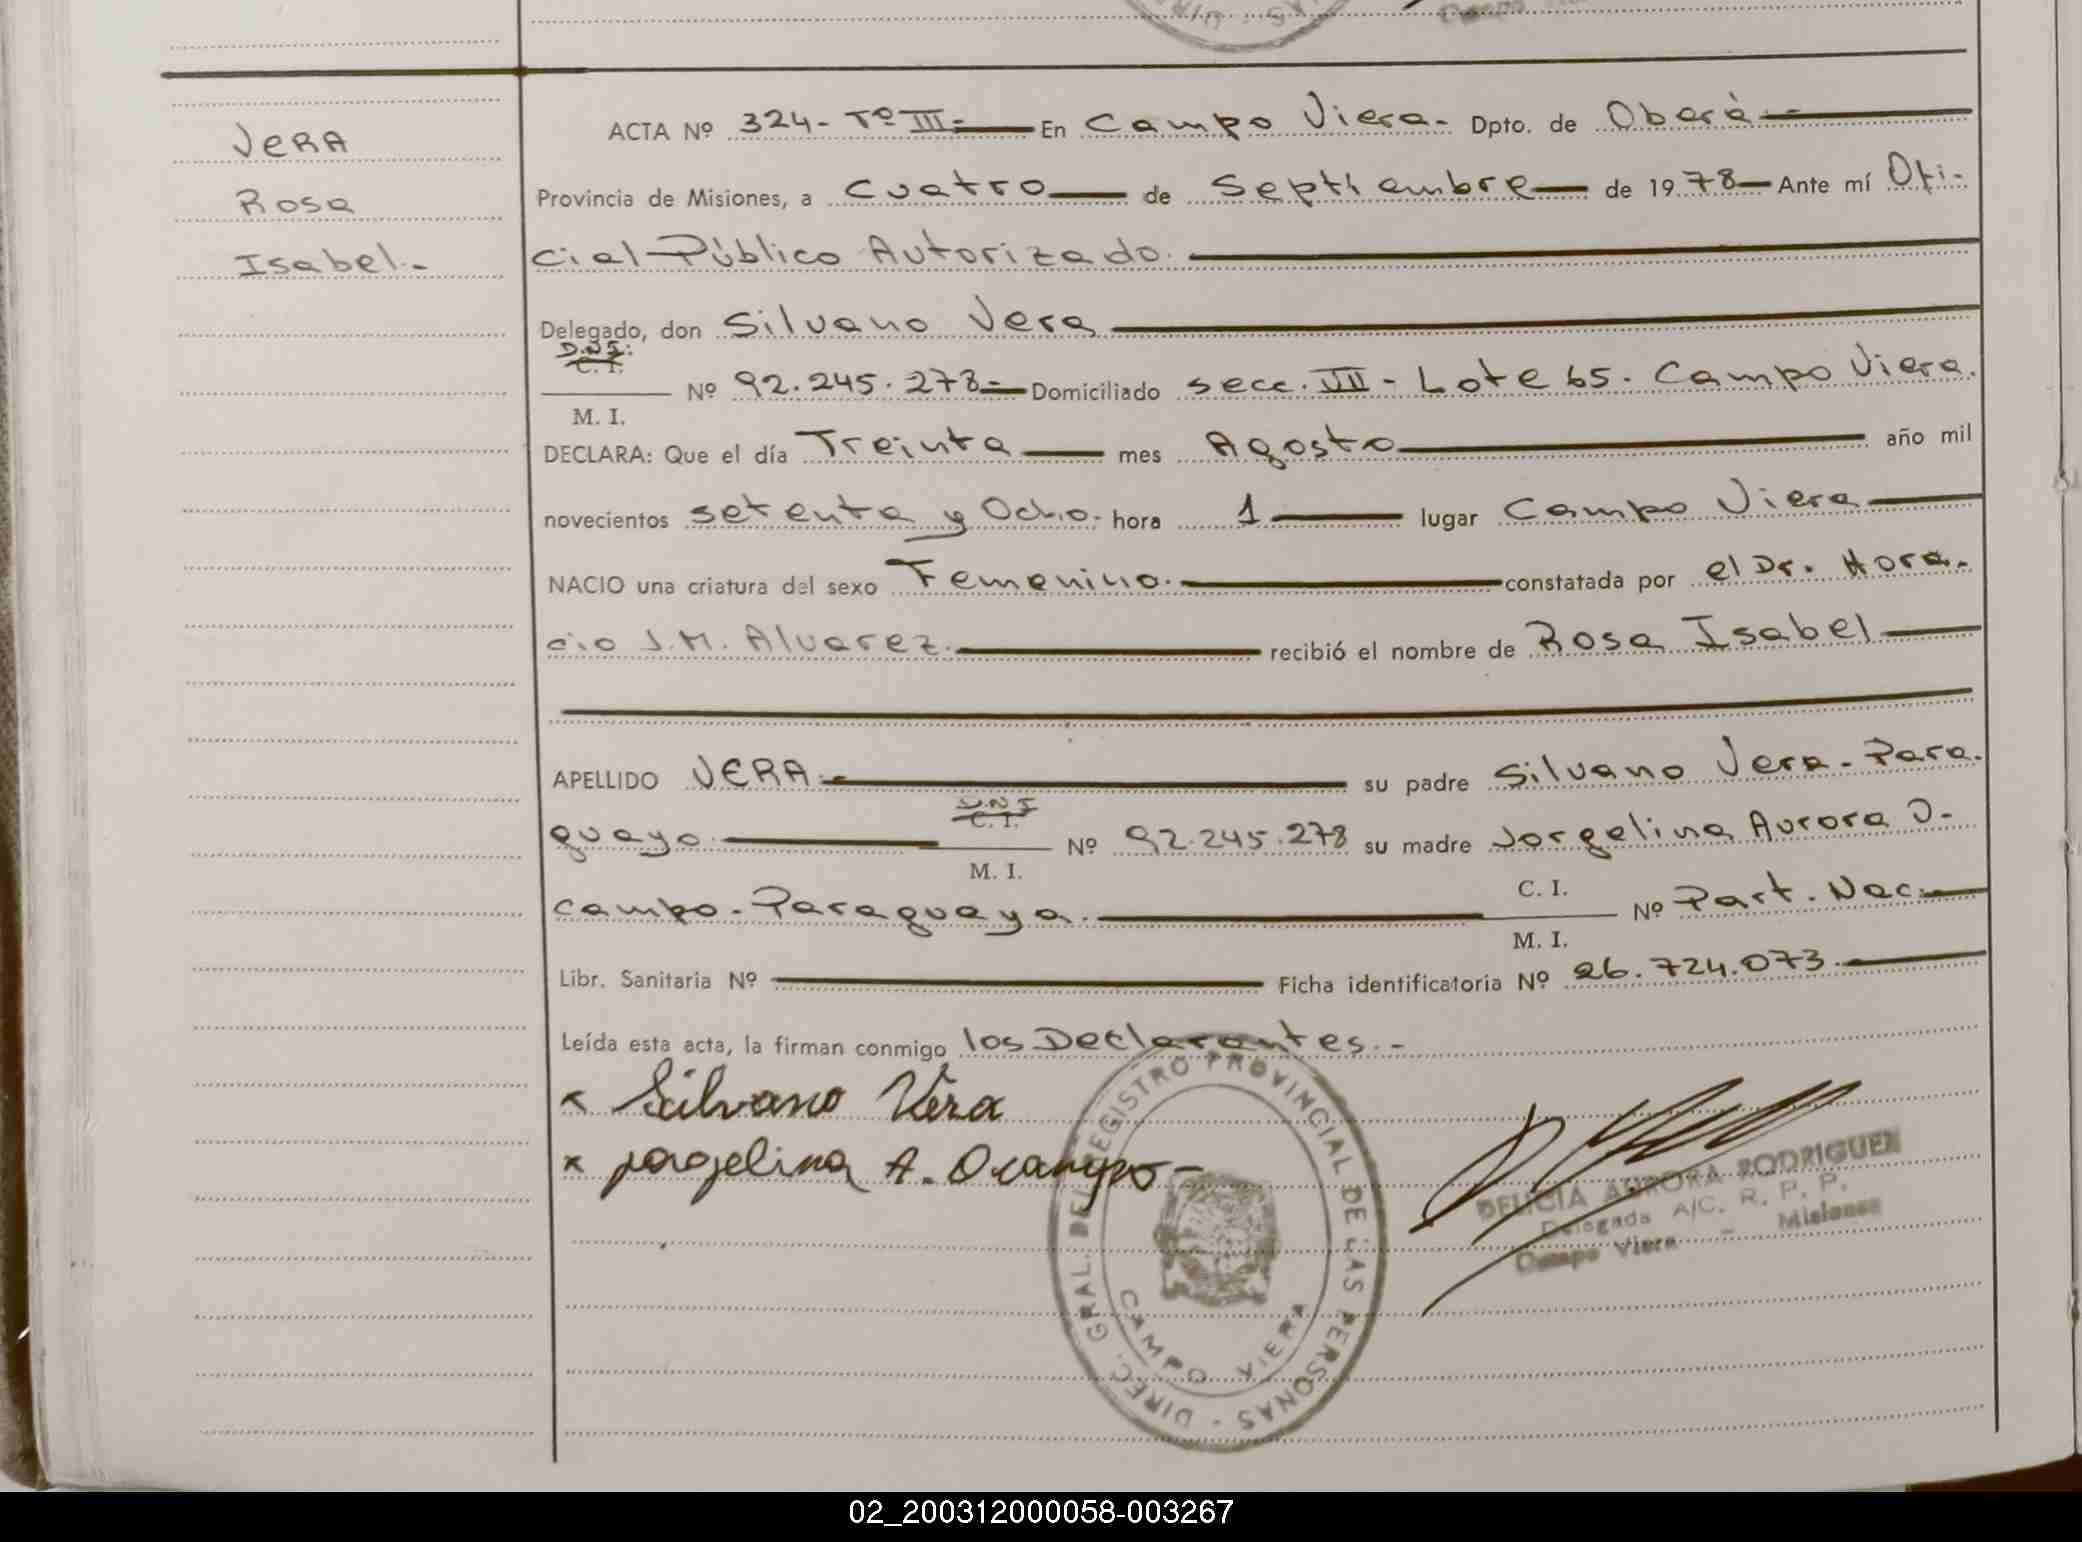 VERA
Rosa
Isabel.-
ACTA Nº 324- Tº III- En Campo Viera- Dpto. de Oberà-
Provincia de Misiones, a cuatro de Septiembre de 1978- Ante mí Ofi-
cial Público Autorizado.
Delegado, don Silvano Vera
D.N.I:
C. I.
M. I.
Nº 92.245.278- Domiciliado secc. VII- Lote 65. Campo Viera.
DECLARA: Que el día Treinta mes Agosto año mil
novecientos setenta y Ocho. hora 1 lugar Campo Viera
NACIO una criatura del sexo Femenino. constatada por el Dr. Hora-
cio J.M. Alvarez. recibió el nombre de Rosa Isabel
APELLIDO VERA.- su padre Silvano Vera- Para-
D.N.I
C. I.
guayo. M. I. Nº 92.245.278 su madre Jorgelina Aurora O-
campo- Paraguaya. C. I. M. I. Nº Part. Nac.
Libr. Sanitaria Nº Ficha identificatoria Nº 26.724.073.
Leída esta acta, la firman conmigo los Declarantes.-
x Silvano Vera
x Jorgelina A. Ocampo-
DIREC. GRAL. DEL REGISTRO PROVINCIAL DE LAS PERSONAS -
CAMPO VIERA
DELICIA AURORA RODRIGUEZ
Delegada A/C. R. P. P.
Campo Viera - Misiones
02_200312000058-003267